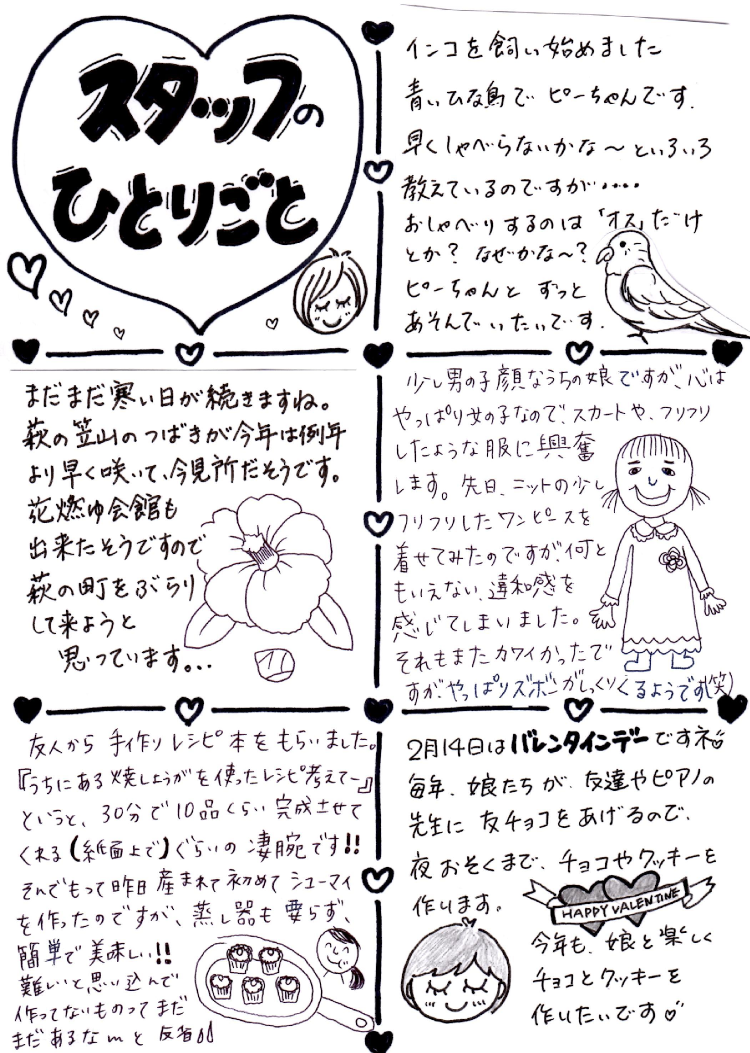 スタッフの
ひとりごと
インコを飼い始めました
青いひな鳥で ピーちゃんです.
早くしゃべらないかな〜といろいろ
教えているのですが・・・・
おしゃべりするのは「オス」だけ
とか? なぜかな〜?
ピーちゃんと ずっと
あそんでいたいです.
まだまだ寒い日が続きますね。
萩の笠山のつばきが今年は例年
より早く咲いて、今見所だそうです。
花燃ゆ会館も
出来たそうですので
萩の町をぶらり
して来ようと
思っています。..
少し男の子顔なうちの娘ですが、心は
やっぱり女の子なので、スカートや、フリフリ
したような服に興奮
します。先日、ニットの少し
フリフリしたワンピースを
着せてみたのですが、何と
もいえない、違和感を
感じてしまいました。
それもまたカワイかったで
すが、やっぱりズボンがしっくりくるようです(笑)
友人から 手作りレシピ本をもらいました。
『うちにある焼しょうがを使ったレシピ考えてー』
というと、30分で10品くらい完成させて
くれる(紙面上で)ぐらいの凄腕です!!
そんでもって昨日産まれて初めてシューマイ
を作ったのですが、蒸し器も要らず、
簡単で美味しい!!
難しいと思い込んで
作ってないものってまだ
まだあるなmと 反省
2月14日はバレンタインデーですネ
毎年、娘たちが、友達やピアノの
先生に 友チョコをあげるので、
夜おそくまで、チョコやクッキーを
作ります。
HAPPY VALENTINE
今年も、娘と楽しく
チョコとクッキーを
作りたいです♡